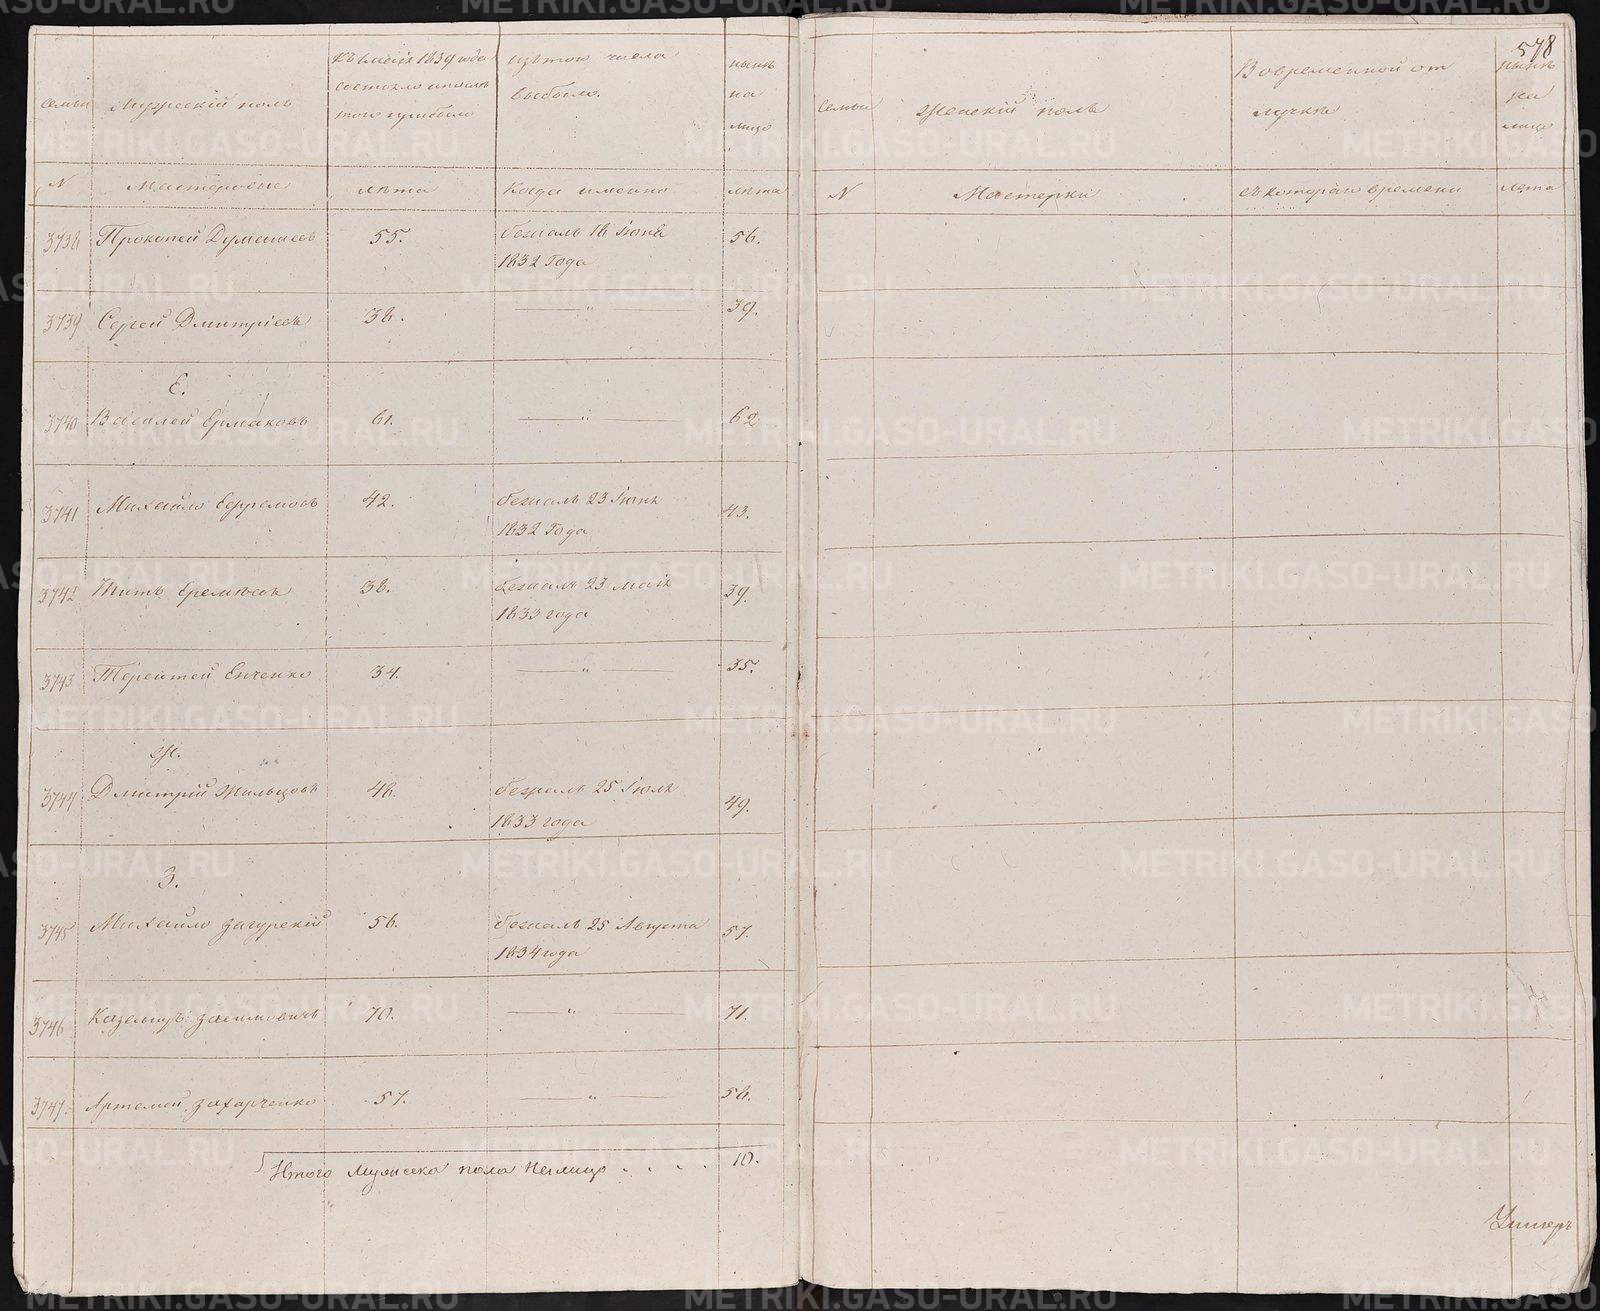 семьи
Мужескій полъ
Къ 1 маія 1839 года
состояло и послѣ
того прибыло
изъ того числа
выбыло.
нынѣ
на
лицо
N
Мастеровые
лѣта
Когда именно
лѣта
3738 Прокопей Думенсев 55. бежалъ 18 Іюня 56.
1832 Года
3739 Сергей Дмитріевъ 38. — " — 39.
Е.
3740 Василей Ермаковъ 61. — " — 62
3741 Михайло Ефремовъ 42. бежалъ 23 Іюня 43.
1832 Года
3742 Титъ Еремѣевъ 38. бежалъ 23 маія 39.
1833 года
3743 Терентей Енченко 34. — " — 35.
Ж.
3744 Дмитрій Жильцовъ 48. бежалъ 25 Іюля 49.
1833 года
З.
3745 Михайло Загурскій 56. бежалъ 25 Августа 57.
1834 года
3746 Каземиръ Заимовичъ 70. — " — 71.
3747. Артемей Захарченко 57. — " — 58.
Итого Мужеска пола На лицо . . . . . 10.
578
семьи
Женскій полъ
Во временной от
лучкѣ
нынѣ
на
лицо
N
Мастерки
съ котораго времени
лѣта
Унтеръ
METRIKI.GASO-URAL.RU